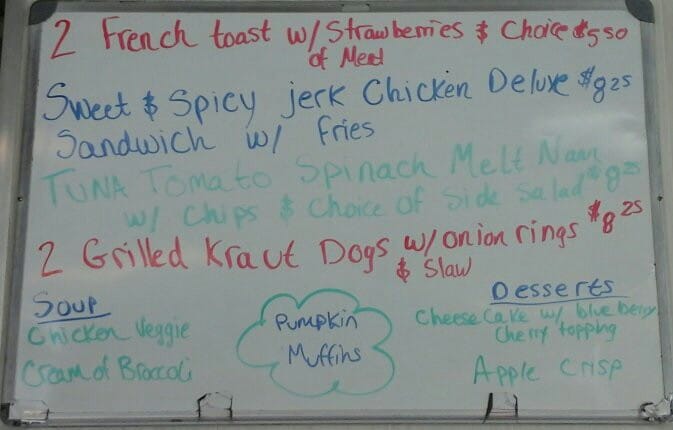 2 French toast w/ Strawberries & Choice $5 50
of Meat
Sweet & Spicy jerk Chicken Deluxe $8 25
Sandwich w/ Fries
TUNA Tomato Spinach Melt Naan
w/ Chips & Choice of Side Salad $8 25
2 Grilled Kraut Dogs w/ onion rings $8 25
& Slaw
Soup
Chicken Veggie
Cream of Broccoli
Pumpkin
Muffins
Desserts
Cheese Cake w/ blueberry
Cherry topping
Apple Crisp